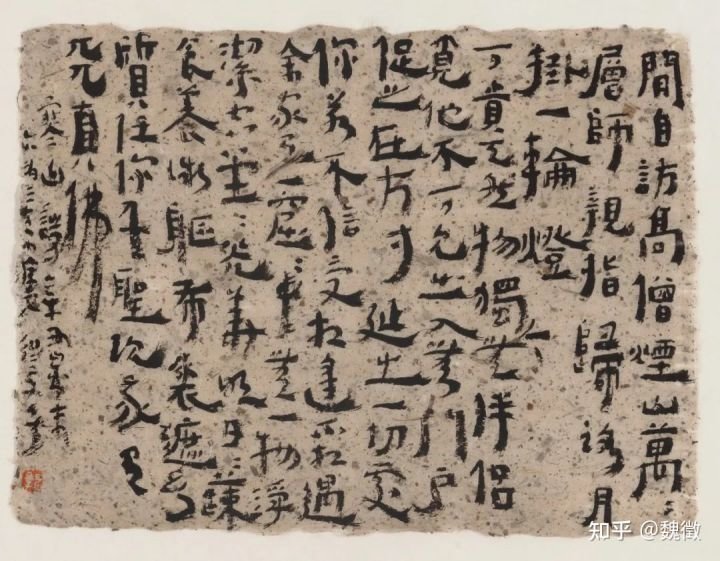 間自訪高僧煙山萬〻
層師親指歸路月
掛一輪燈
可貴天然物獨一無伴侶
覓他不可見出入無門戶
促之在方寸延之一切處
你若不信受相逢不相遇
余家有一窟〻中無一物淨
潔空堂〻光華明日〻蔬
食養微軀布裘遮幻
質任你千聖現我有
天真佛
寒山詩三首
知乎 @魏徵